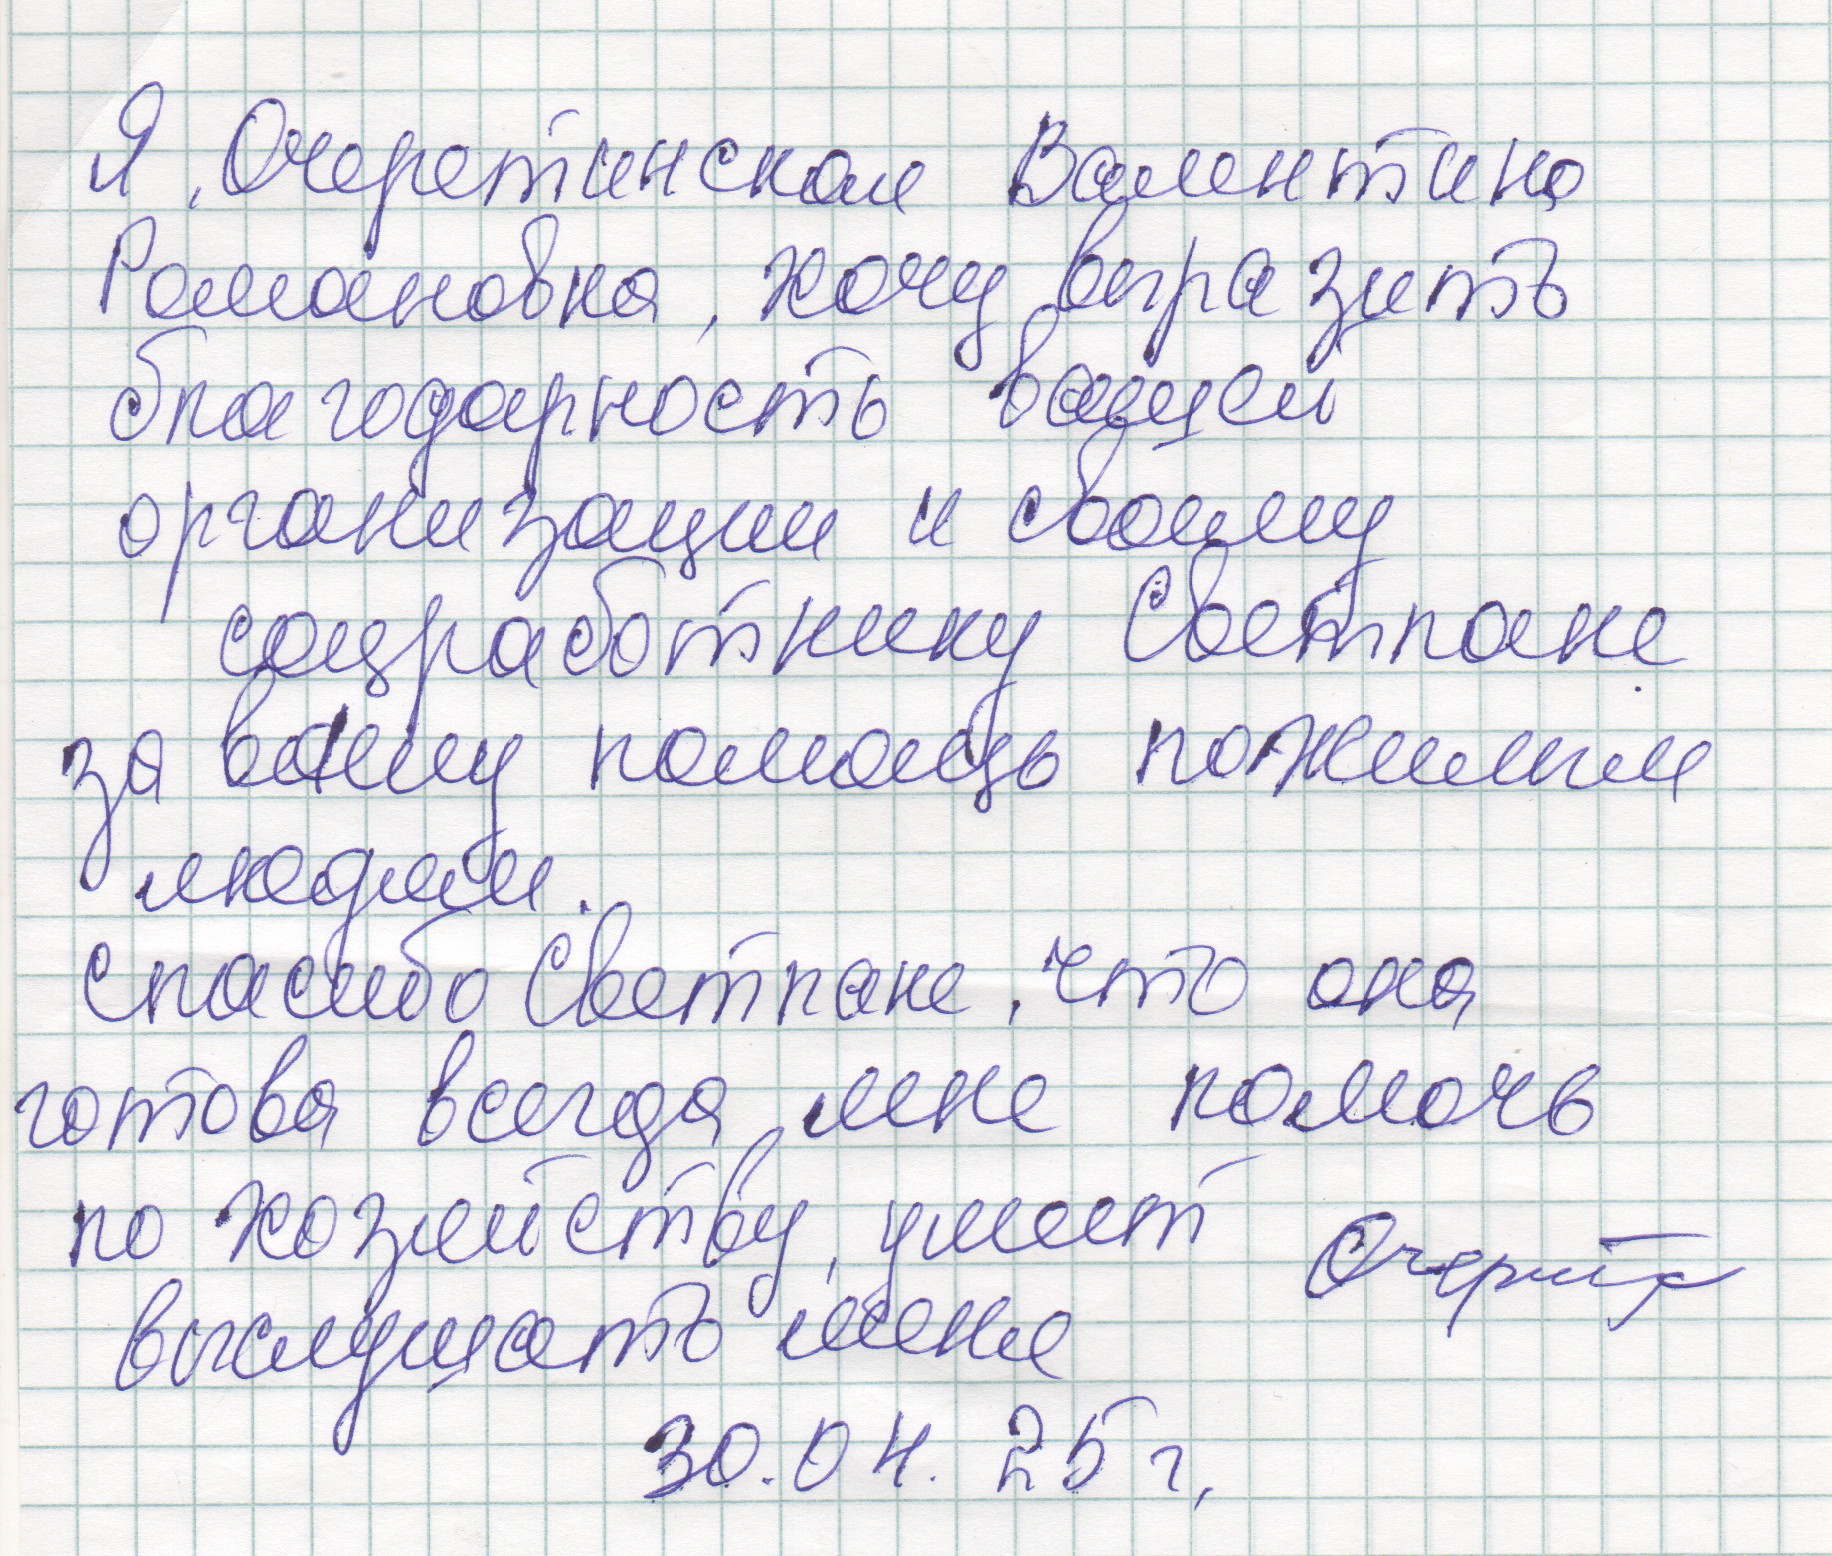 Я, Очеретинская Валентина
Романовна, хочу выразить
благодарность вашей
организации и своему
соцработнику Светлане
за вашу помощь пожилым
людям.
Спасибо Светлане, что она
готова всегда мне помочь
по хозяйству, умеет
выслушать меня
30.04.25 г.